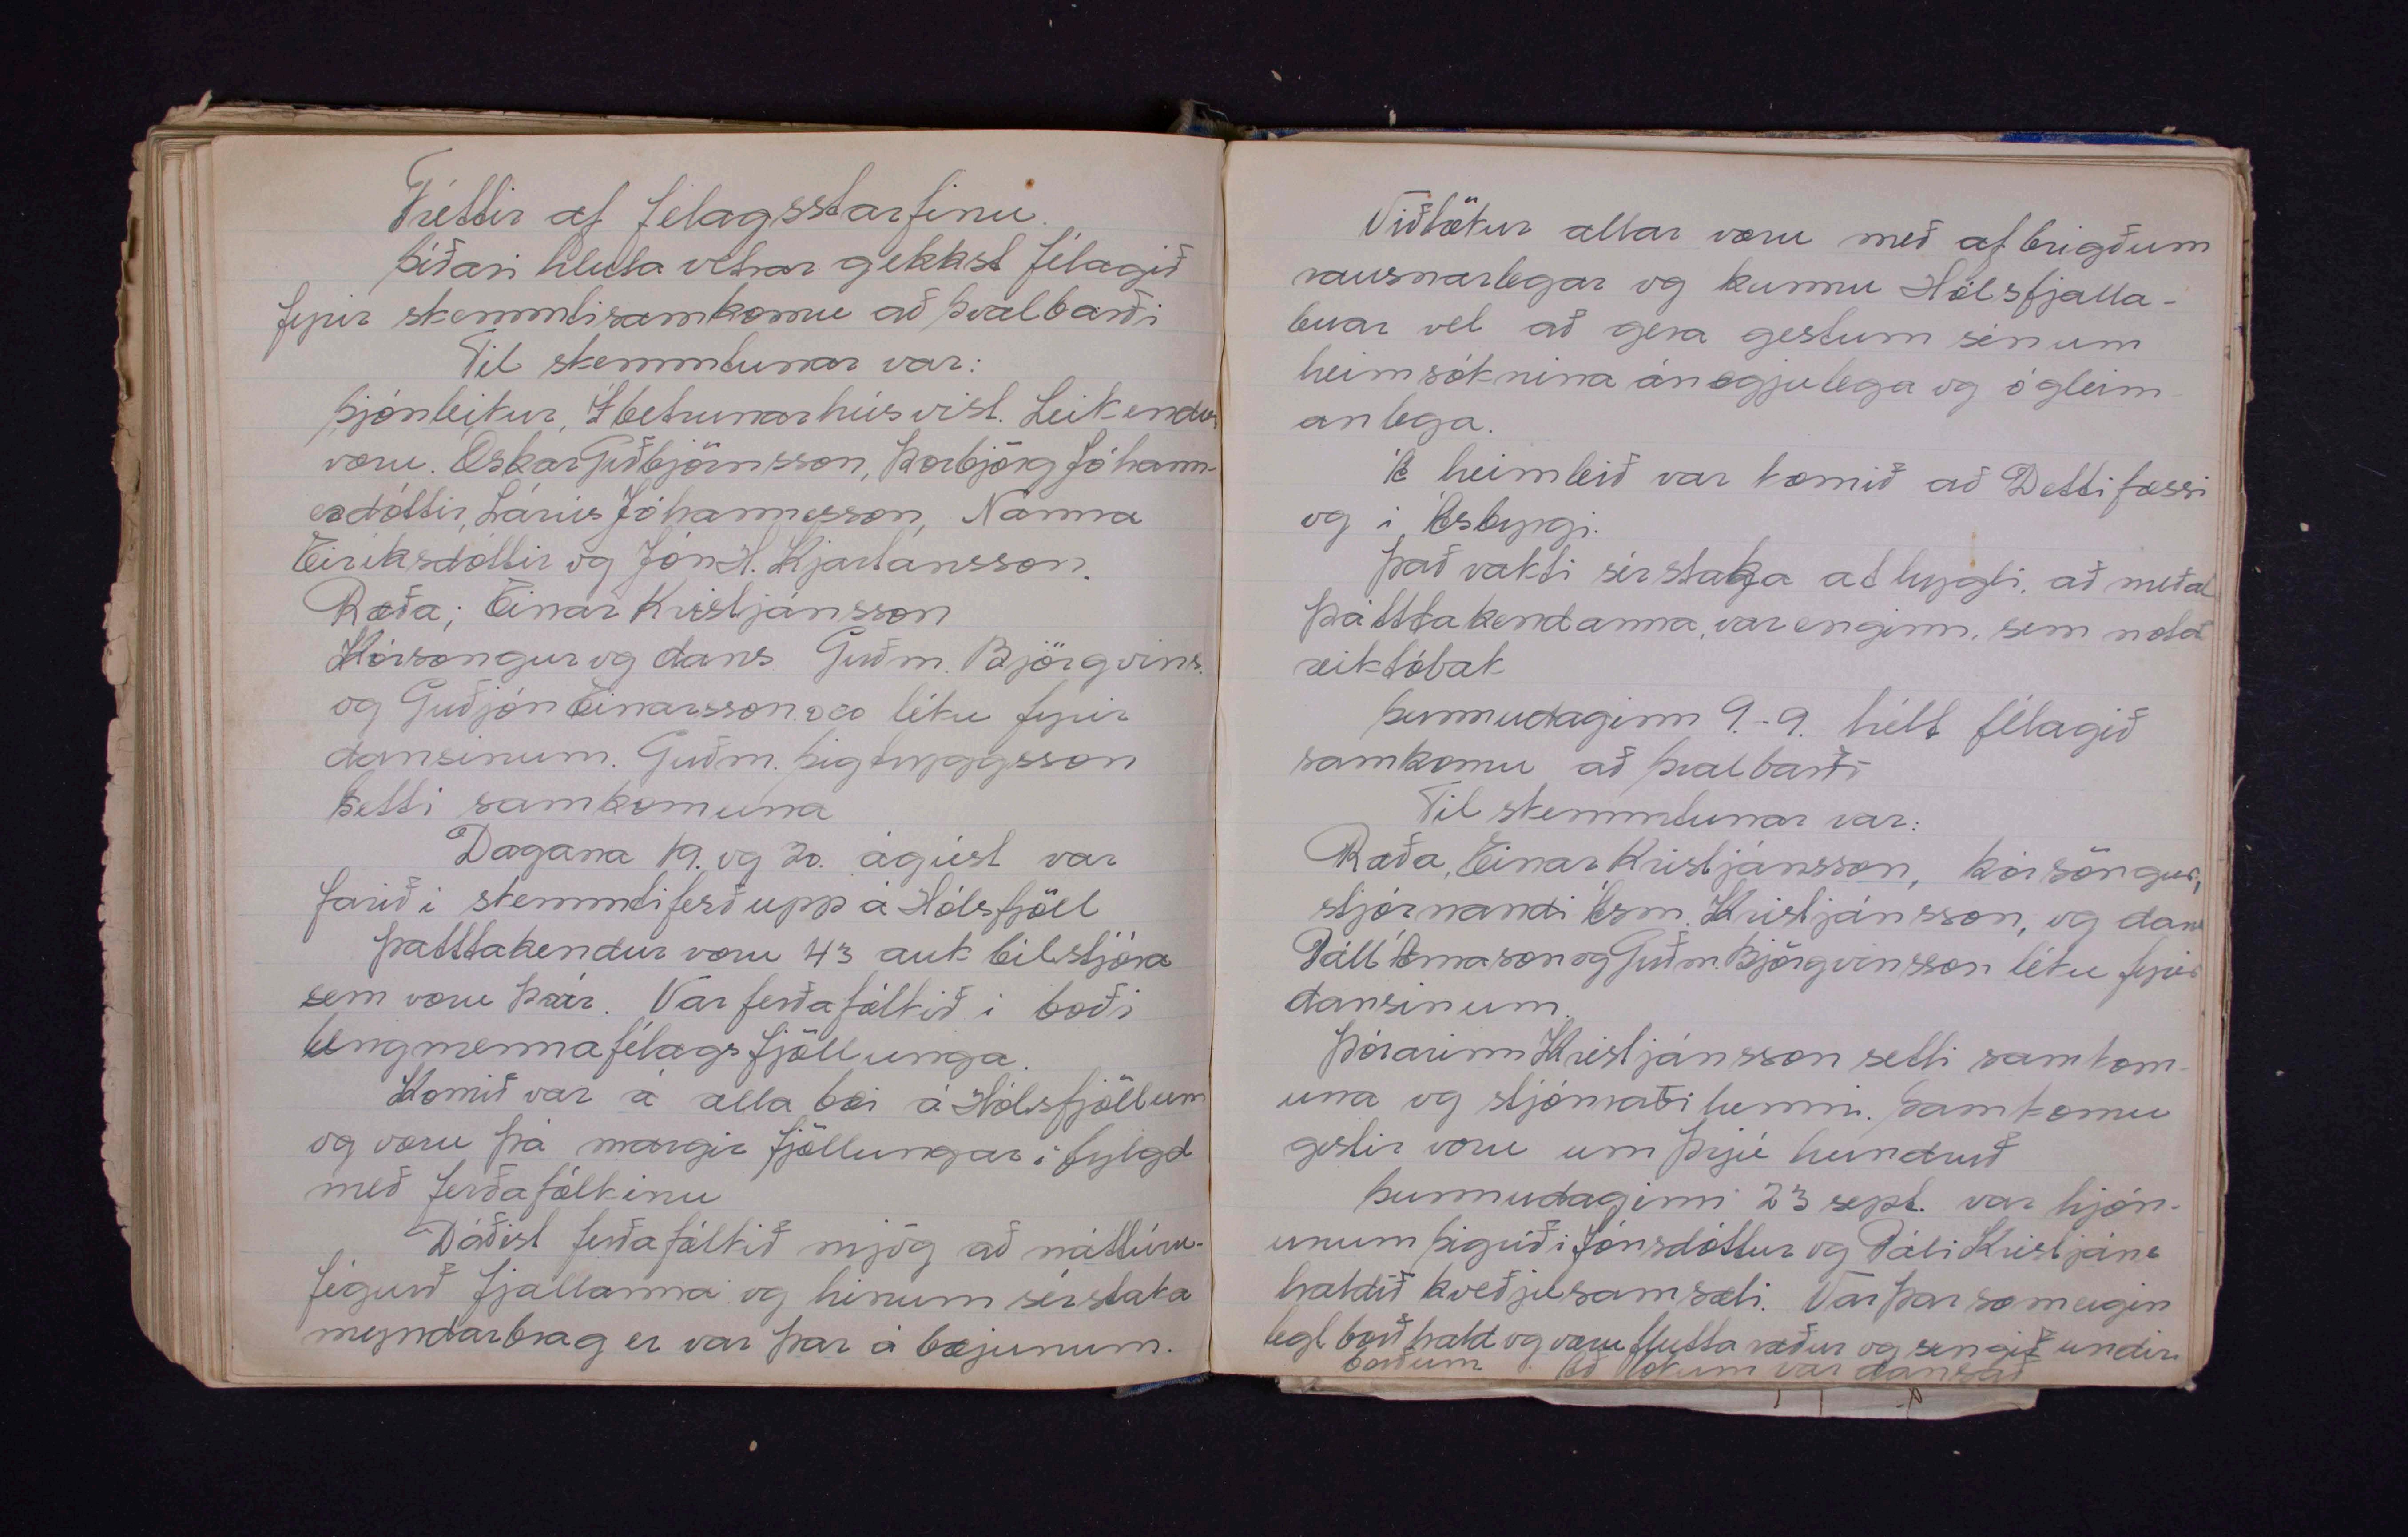 Fréttir af félagsstarfinu.
Síðari hluta vetrar gekkst félagið
fyrir skemmtisamkomu að Svalbarði
Til skemmtunar var:
Sjónleikur, Í betrunarhúsvist. Leikendur
voru. Óskar Guðbjörnsson, Þorbjörg Jóhann-
esdóttir, Lárus Jóhannesson, Nanna
Eiríksdóttir og Jón H. Kjartansson.
Ræða; Einar Kristjánsson
Kórsöngur og dans Guðm. Björgvins.
og Guðjón Einarsson léku fyrir
dansinum. Guðm. Sigtryggsson
Setti samkomuna
Dagana 19. og 20. ágúst var
farið í skemmtiferð upp á Hólsfjöll
Þátttakendur voru 43 auk bílstjóra
sem voru þrír. Var ferðafólkið í boði
Ungmennafélags Fjöllunga.
Komið var á alla bæi á Hólsfjöllum
og voru þá margir Fjöllungar í fylgd
með ferðafólkinu
Dáðist ferðafólkið mjög að náttúru-
fegurð fjallanna og hinum sérstaka
myndarbrag er var þar á bæjunum.
Viðtökur allar voru með afbrigðum
rausnarlegar og kunnu Hólsfjalla-
búar vel að gera gestum sínum
heimsóknina ánægjulega og ógleim
anlega.
Á heimleið var komið að Dettifossi
og í Ásbyrgi.
Það vakti sérstaka athygli, að meðal
þátttakendanna, var enginn, sem notað
reiktóbak
Sunnudaginn 9.-9. hélt félagið
samkomu að Svalbarði
Til skemmtunar var:
Ræða, Einar Kristjánsson, kórsöngur,
stjórnandi Ásm. Kristjánsson, og dans
Páll Árnason og Guðm. Björgvinsson léku fyrir
dansinum.
Þórarinn Kristjánsson setti samkom-
una og stjórnaði henni. Samkomu
gestir voru um þrjú hundruð
Sunnudaginn 23 sept. var hjón-
unum Sigríði Jónsdóttur og Páli Kristjáns
haldið kveðjusamsæti. Var þar sameigin
legt borðhald og voru flutta ræður og sungið undir
borðum Að lokum var dansað